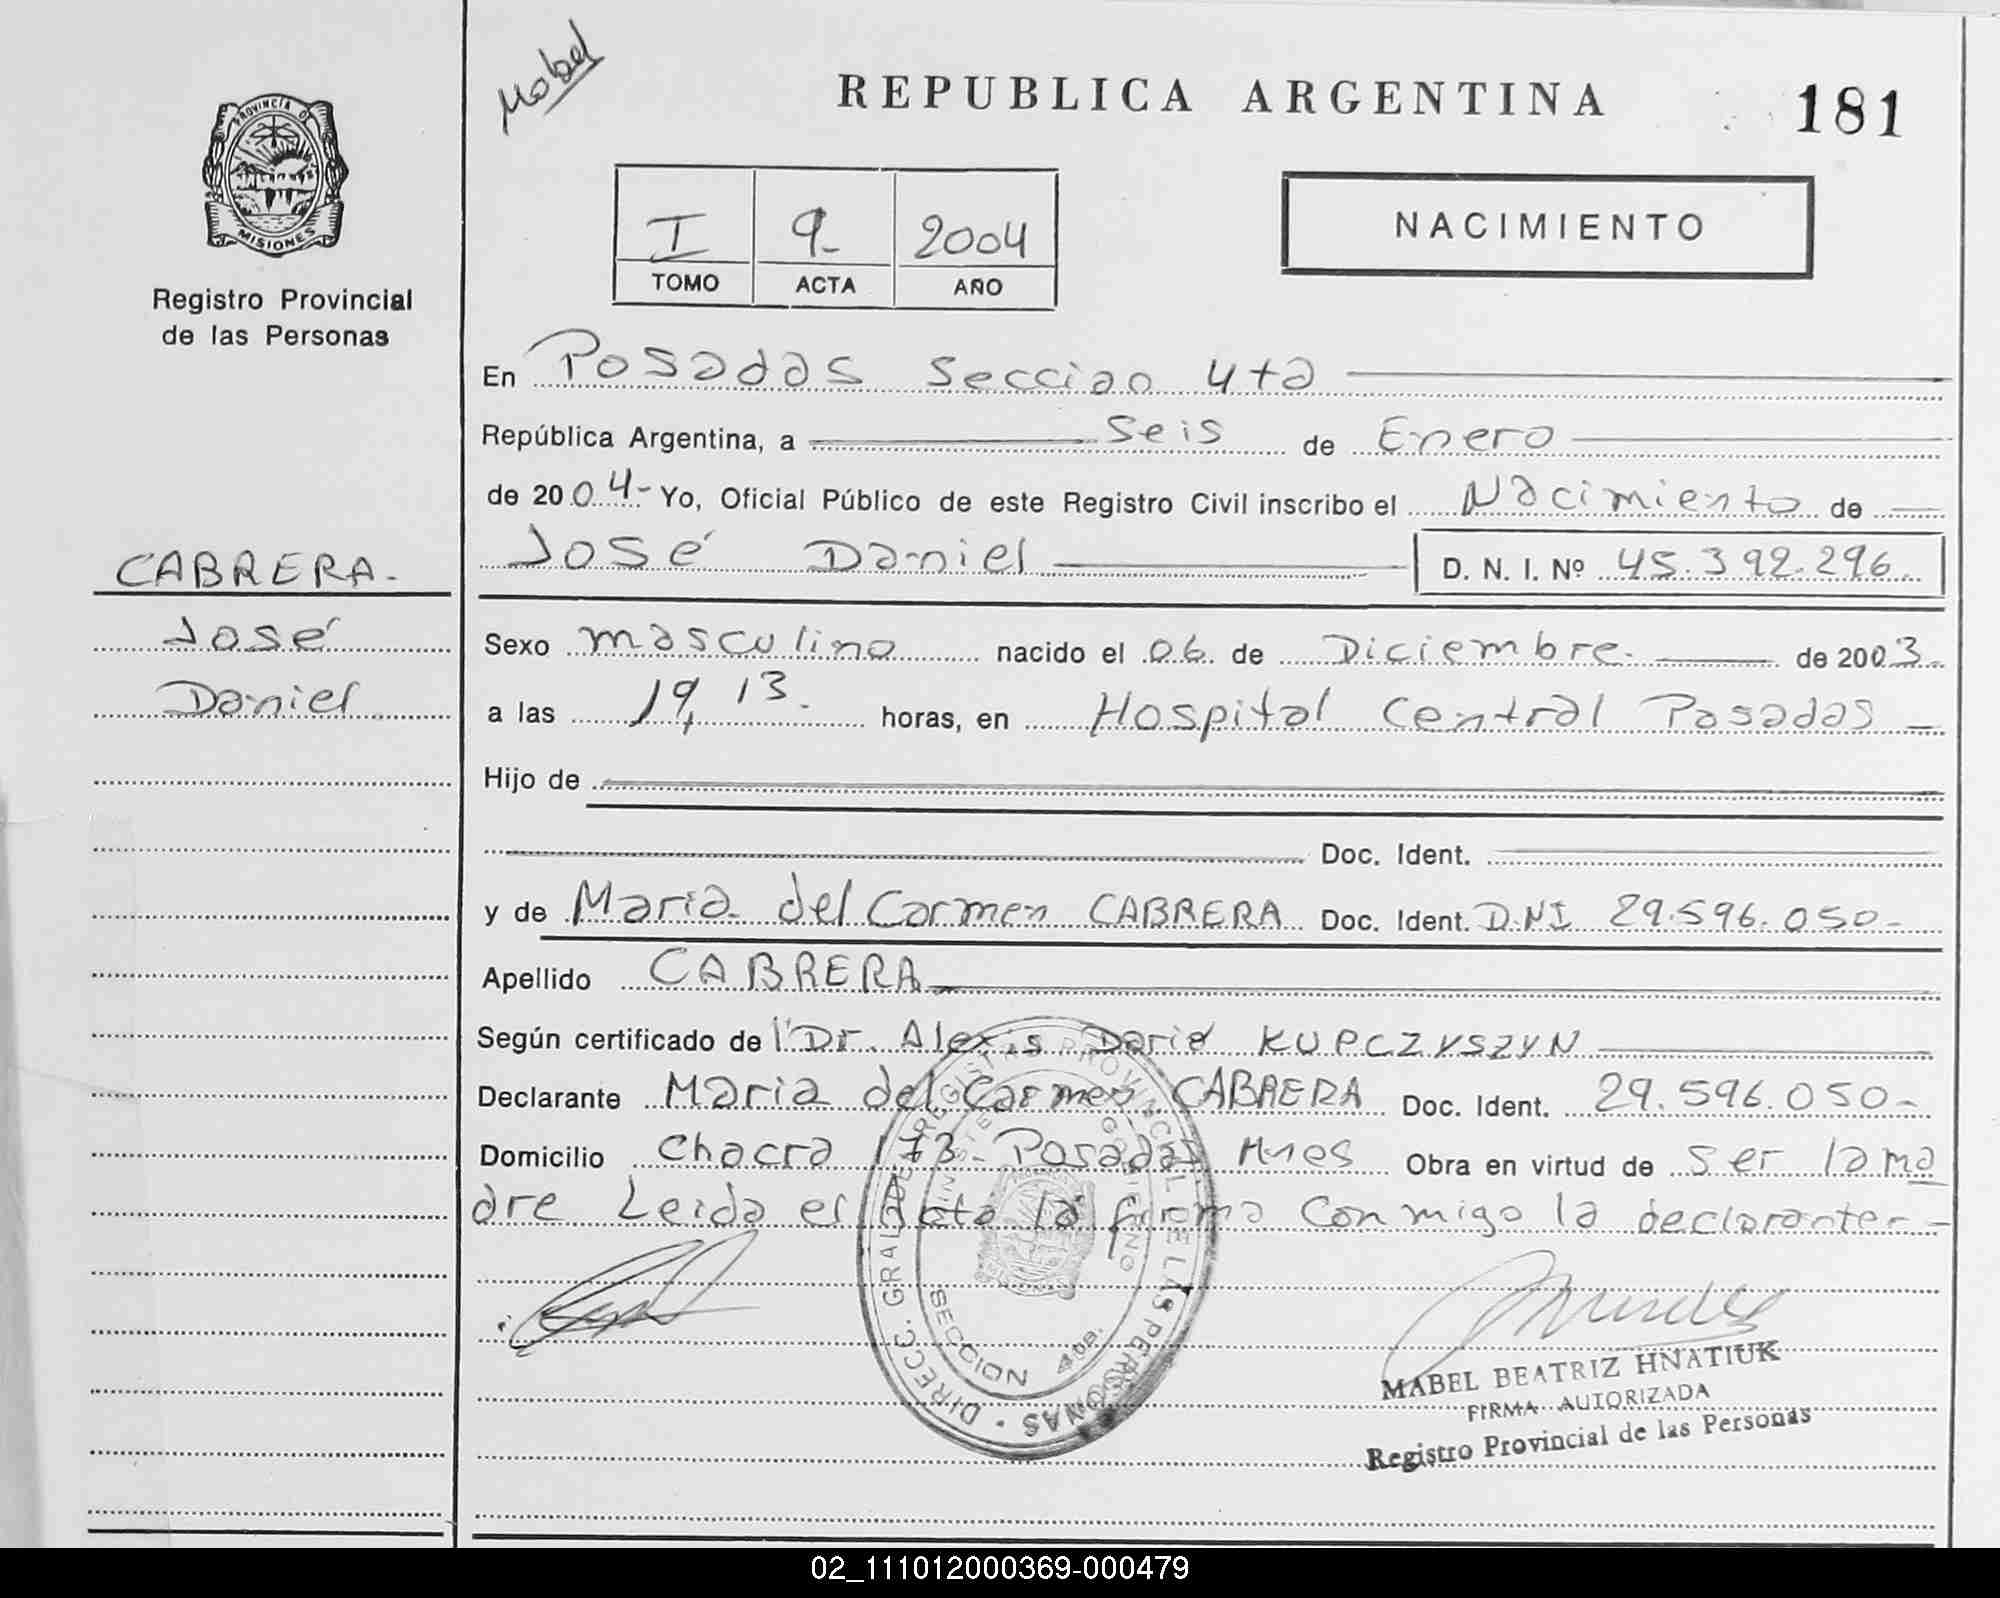 Mabel
REPUBLICA ARGENTINA
181
PROVINCIA D
MISIONES
Registro Provincial
de las Personas
I 9- 2004
TOMO ACTA AÑO
NACIMIENTO
En Posadas Seccion 4ta
República Argentina, a Seis de Enero
de 2004- Yo, Oficial Público de este Registro Civil inscribo el Nacimiento de
José Daniel D. N. I. Nº 45.392.296.
CABRERA-
José
Daniel
Sexo masculino nacido el 06 de Diciembre. de 2003
a las 19,13. horas, en Hospital Central Posadas -
Hijo de
Doc. Ident.
y de Maria del Carmen CABRERA Doc. Ident. D.NI 29.596.050-
Apellido CABRERA
Según certificado de l'Dr. Alexis Dario KUPCZYSZYN
Declarante Maria del Carmen CABRERA Doc. Ident. 29.596.050-
Domicilio Chacra 173- Posadas Mnes Obra en virtud de ser la ma
dre Leida el Acta la firma conmigo la declarante-
DIRECC. GRAL. DEL REGISTRO PROVINCIAL DE LAS PERSONAS
SECCION 4ta.
MABEL BEATRIZ HNATIUK
FIRMA AUTORIZADA
Registro Provincial de las Personas
02_111012000369-000479